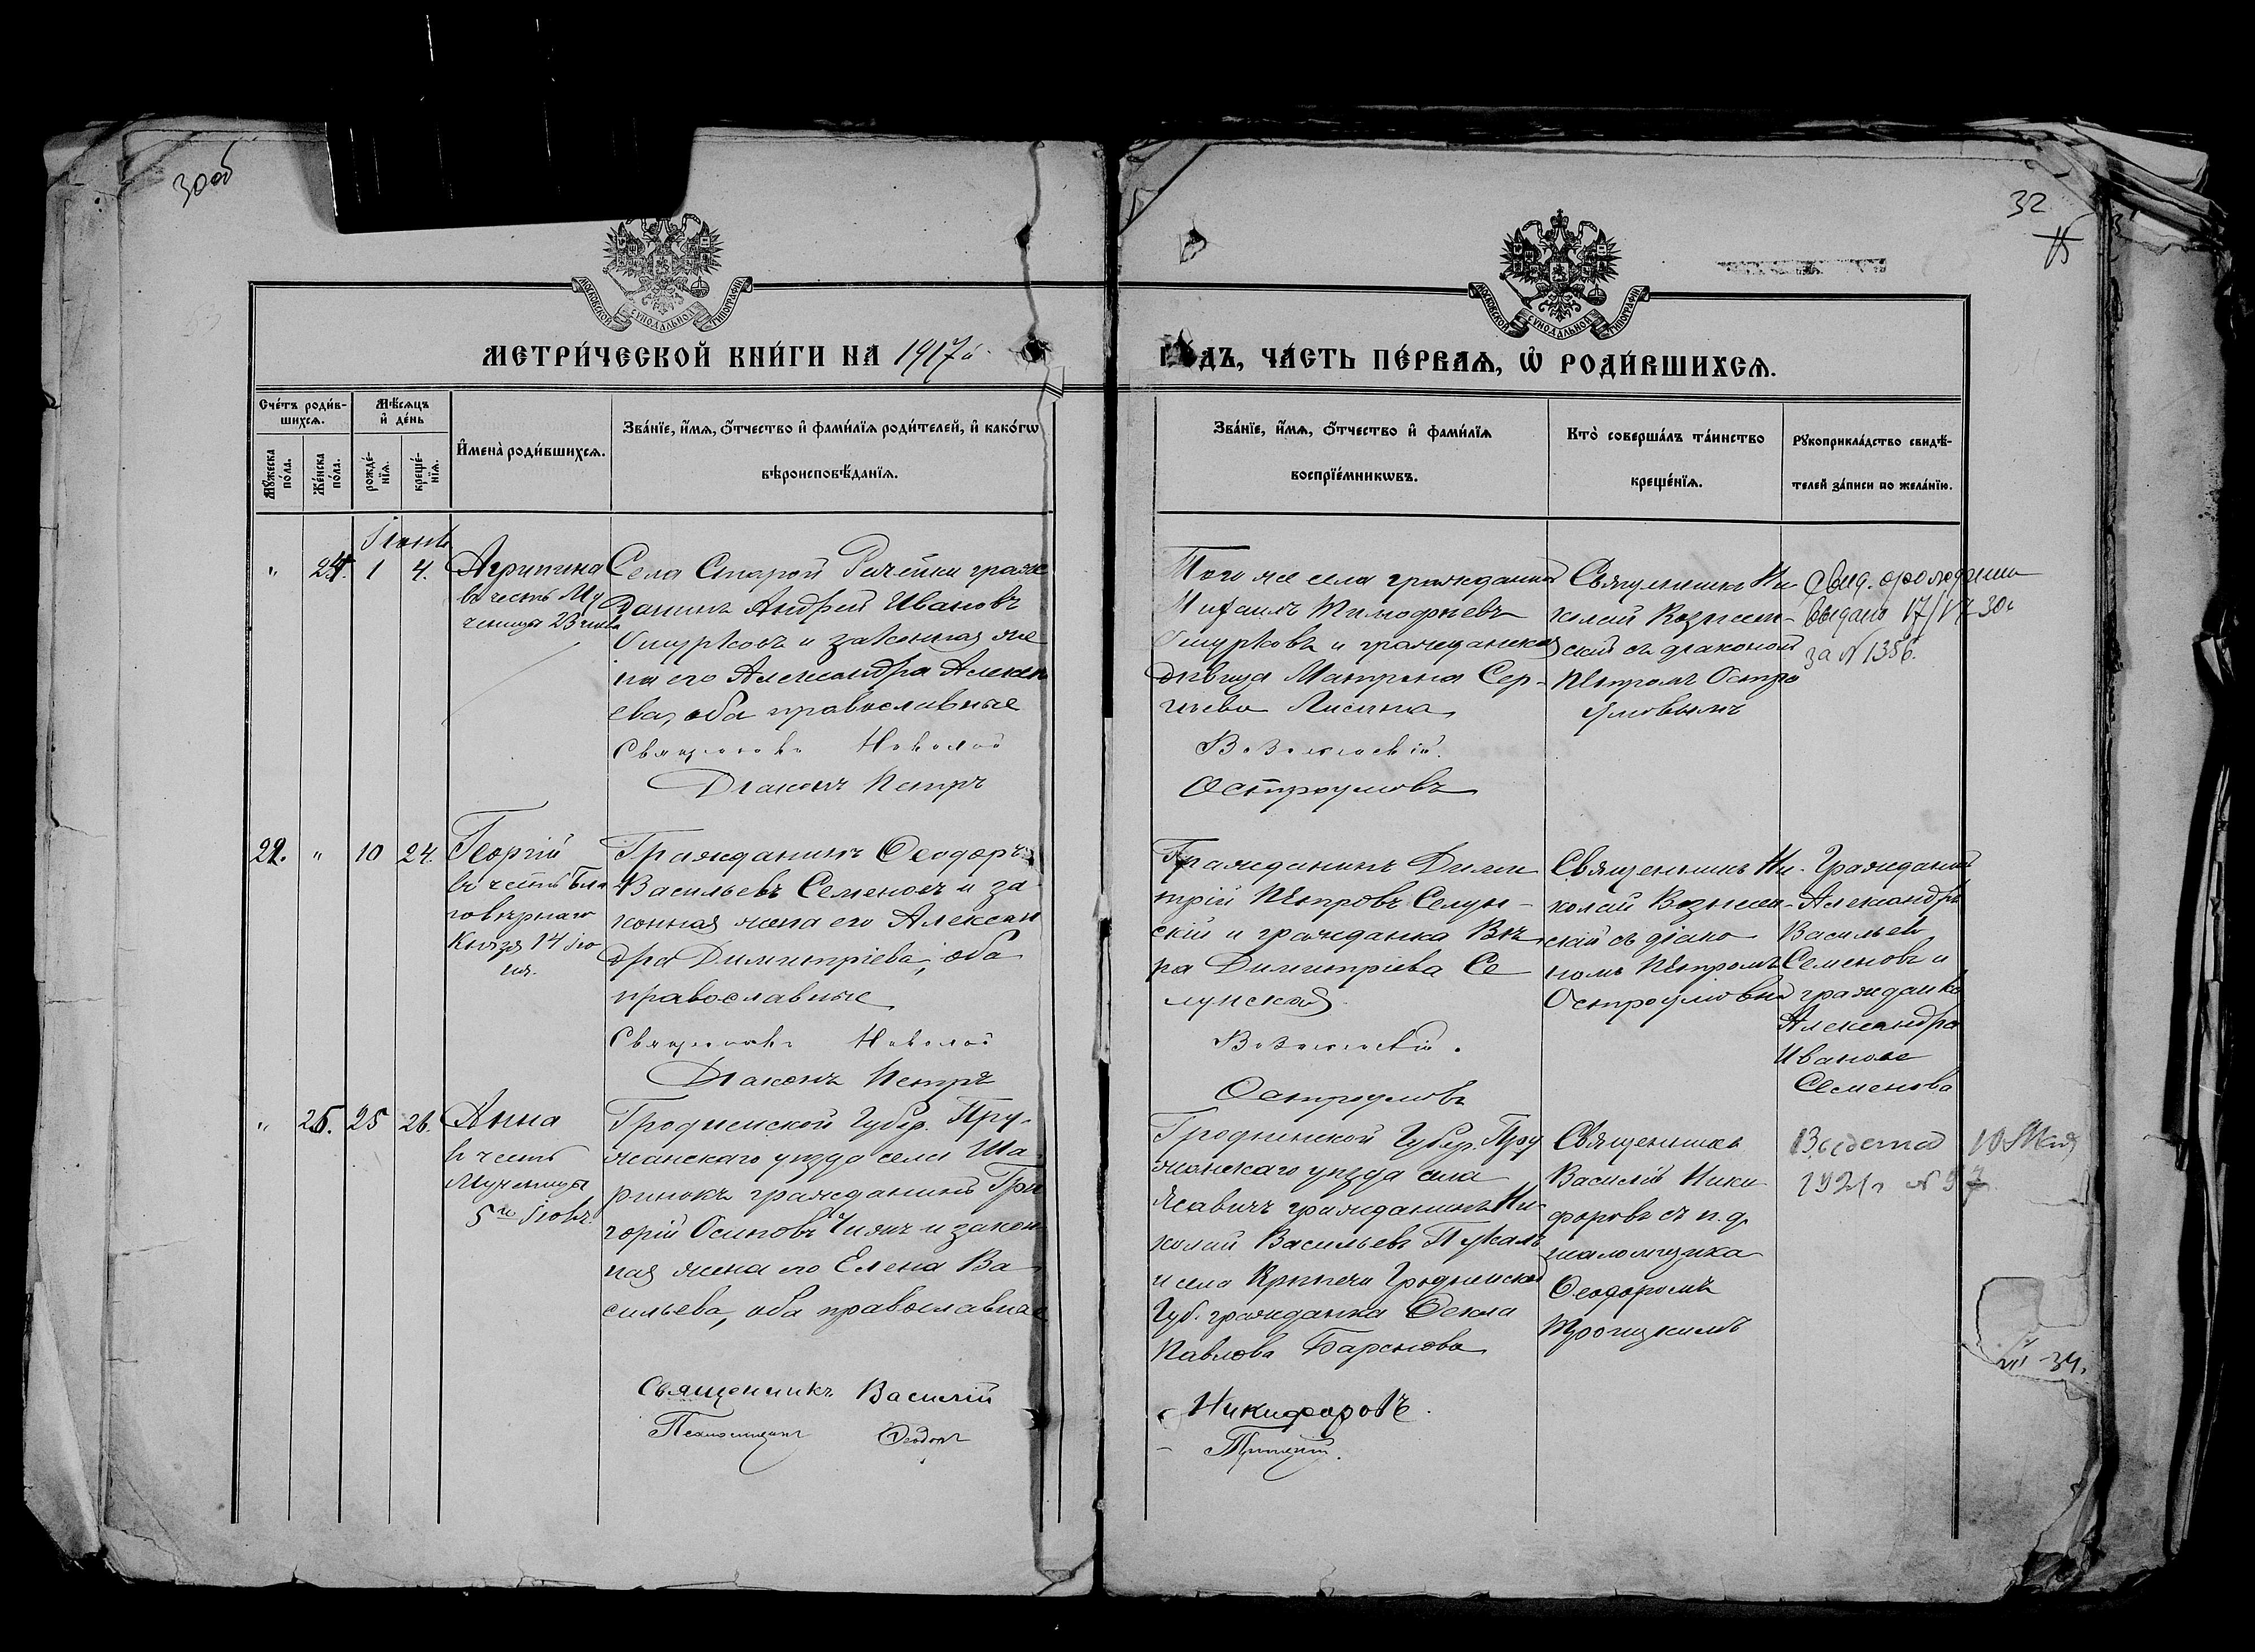 30об
32
МОСКОВСКОЙ СѴНОДАЛЬНОЙ ТИПОГРАФІИ
МОСКОВСКОЙ СѴНОДАЛЬНОЙ ТИПОГРАФІИ
МЕТРИ́ЧЕСКОЙ КНИ́ГИ НА 1917й
ГО́ДЪ, ЧА́СТЬ ПЕ́РВАЯ, Ѡ҆ РОДИ́ВШИХСѦ.
Сче́тъ роди́в-
шихсѧ.
Мꙋ́жеска по́ла.
Же́нска по́ла.
Мѣ́сѧцъ
и҆ де́нь
рожде́-
нїѧ.
креще́-
нїѧ.
И҆мена̀ роди́вшихсѧ.
Зва́нїе, и҆́мѧ, ѻ҆́тчество и҆ фами́лїѧ роди́телей, и҆ како́гѡ
вѣроисповѣ́данїѧ.
Зва́нїе, и҆́мѧ, ѻ҆́тчество и҆ фами́лїѧ
воспрїе́мникѡвъ.
Кто̀ соверша́лъ та́инство
креще́нїѧ.
Рꙋкоприкла́дство свидѣ́-
телей за́писи по жела́нїю.
Іюнь
" 24. 1 4.
Агрипина
въ честь Му
ченицы 23 іюня
Села Старой Ричейки граж
данинъ Андрей Ивановъ
Ошурковъ и законная же
на его Александра Алексѣ
ева, оба православные
Священникъ Николай
Діаконъ Петръ
Того же села гражданинъ
Михаилъ Тимофѣевъ
Ошурковъ и гражданская
дѣвица Матрона Сер-
гѣева Лисина
Вознесенскій.
Остроумовъ
Священникъ Ни-
колай Вознесен-
скій съ діакономъ
Петромъ Остро
умовымъ
Свид. о рождении
выдано 17/VII 30г
за N 1356.
22. " 10 24.
Георгій
въ честь Бла
говѣрнаго
Князя 14 ію
ня.
Гражданинъ Ѳеодоръ
Васильевъ Семеновъ и за
конная жена его Алексан
дра Димитріева, оба
православные
Священникъ Николай
Діаконъ Петръ
Гражданинъ Дими
трій Петровъ Селун-
скій и гражданка Вѣ
ра Димитріева Се
лунская
Вознесенскій.
Остроумовъ
Священникъ Ни-
колай Вознесен-
скій съ діако
номъ Петромъ
Остроумовымъ
Гражданинъ
Александръ
Васильев
Семеновъ и
гражданка
Александра
Иванова
Семенова
" 25. 25 26.
Анна
въ честь
Мученицы
5го Іюля.
Гродненской Губер. Пру-
жанскаго уѣзда села Ша
ринокъ гражданинъ Гри
горій Осиповъ Чижъ и закон
ная жена его Елена Ва
сильева, оба православные
Священникъ Василій
Псаломщикъ Ѳеодоръ
Гродненской Губер. Пру
жанскаго уѣзда села
гражданинъ Ни-
колай Васильевъ
и села Гродненской
Губ. гражданка Ѳекла
Павлова
Никифоровъ.
Троицкій.
Священникъ
Василій Ники
форовъ съ и.д.
псаломщика
Ѳеодоромъ
Троицкимъ
10 Мая